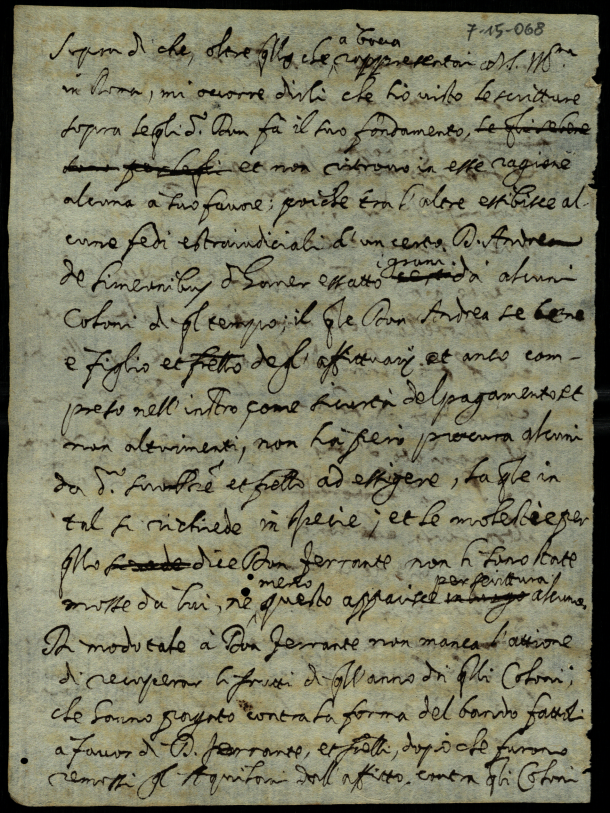 7-15-068
a boca
Sopra di che, oltre qllo che rappresentai a V. S. Ill.ma
in Roma, mi occorre dirli che hò visto le scritture
sopra le qli d.º Don fà il suo fondamento,
et non ritrovo in esse ragione
alcuna à suo favore; poiche tra l'altre essibisce al-
cune fedi estraiudiciali d'un certo D. Andrea
de Simeonibus d'haver essatto grani da alcuni
Coloni di ql tempo; il qle Don Andrea se bene
e figlio et frello degl' affittuarij et anco com-
preso nell' instro come sicurtà del pagamento, et
non altrimenti, non hà però procura alcuna
da d.º suo Pre et frello ad essigere, la qle in
tal si richiede in specie; et le molestie per
qllo dice Don Ferrante non li sono state
mosse da lui, nè meno questo apparisce per scrittura alcuna.
Di modo tale à Don Ferrante non manca l'attione
di recuperar li frutti di qll'anno da qlli Coloni,
che hanno pagato contra la forma del bando fattoli
à favor di D. Ferrante, et frelli, dopò che furono
remossi gl' Aquilani dall' affitto. contra qli Coloni